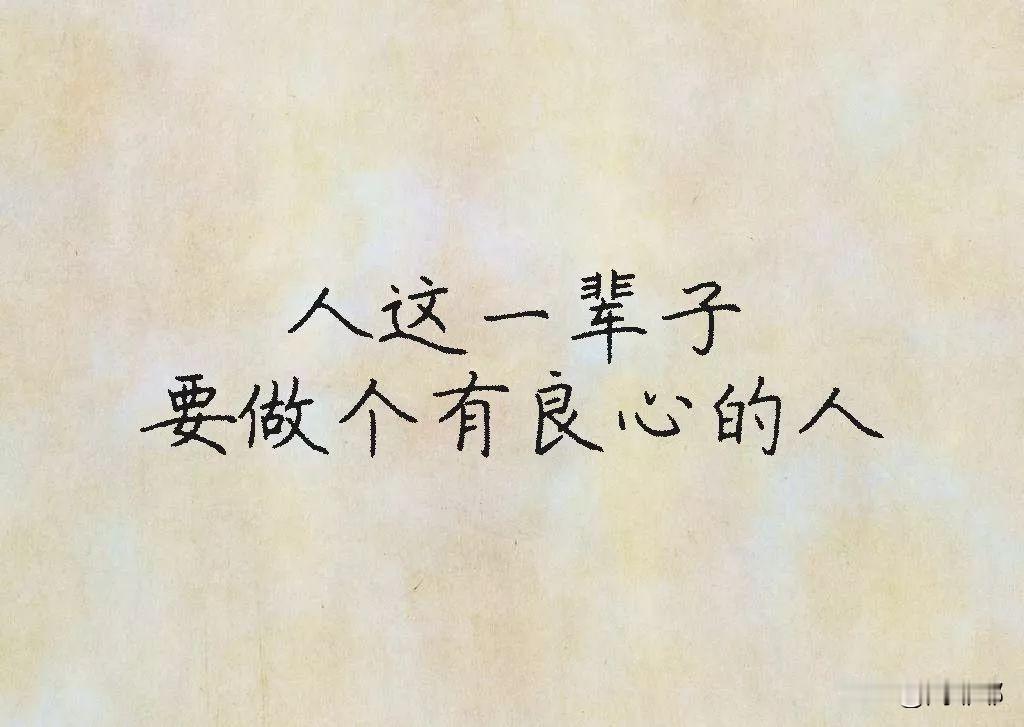 人这一辈子
要做个有良心的人